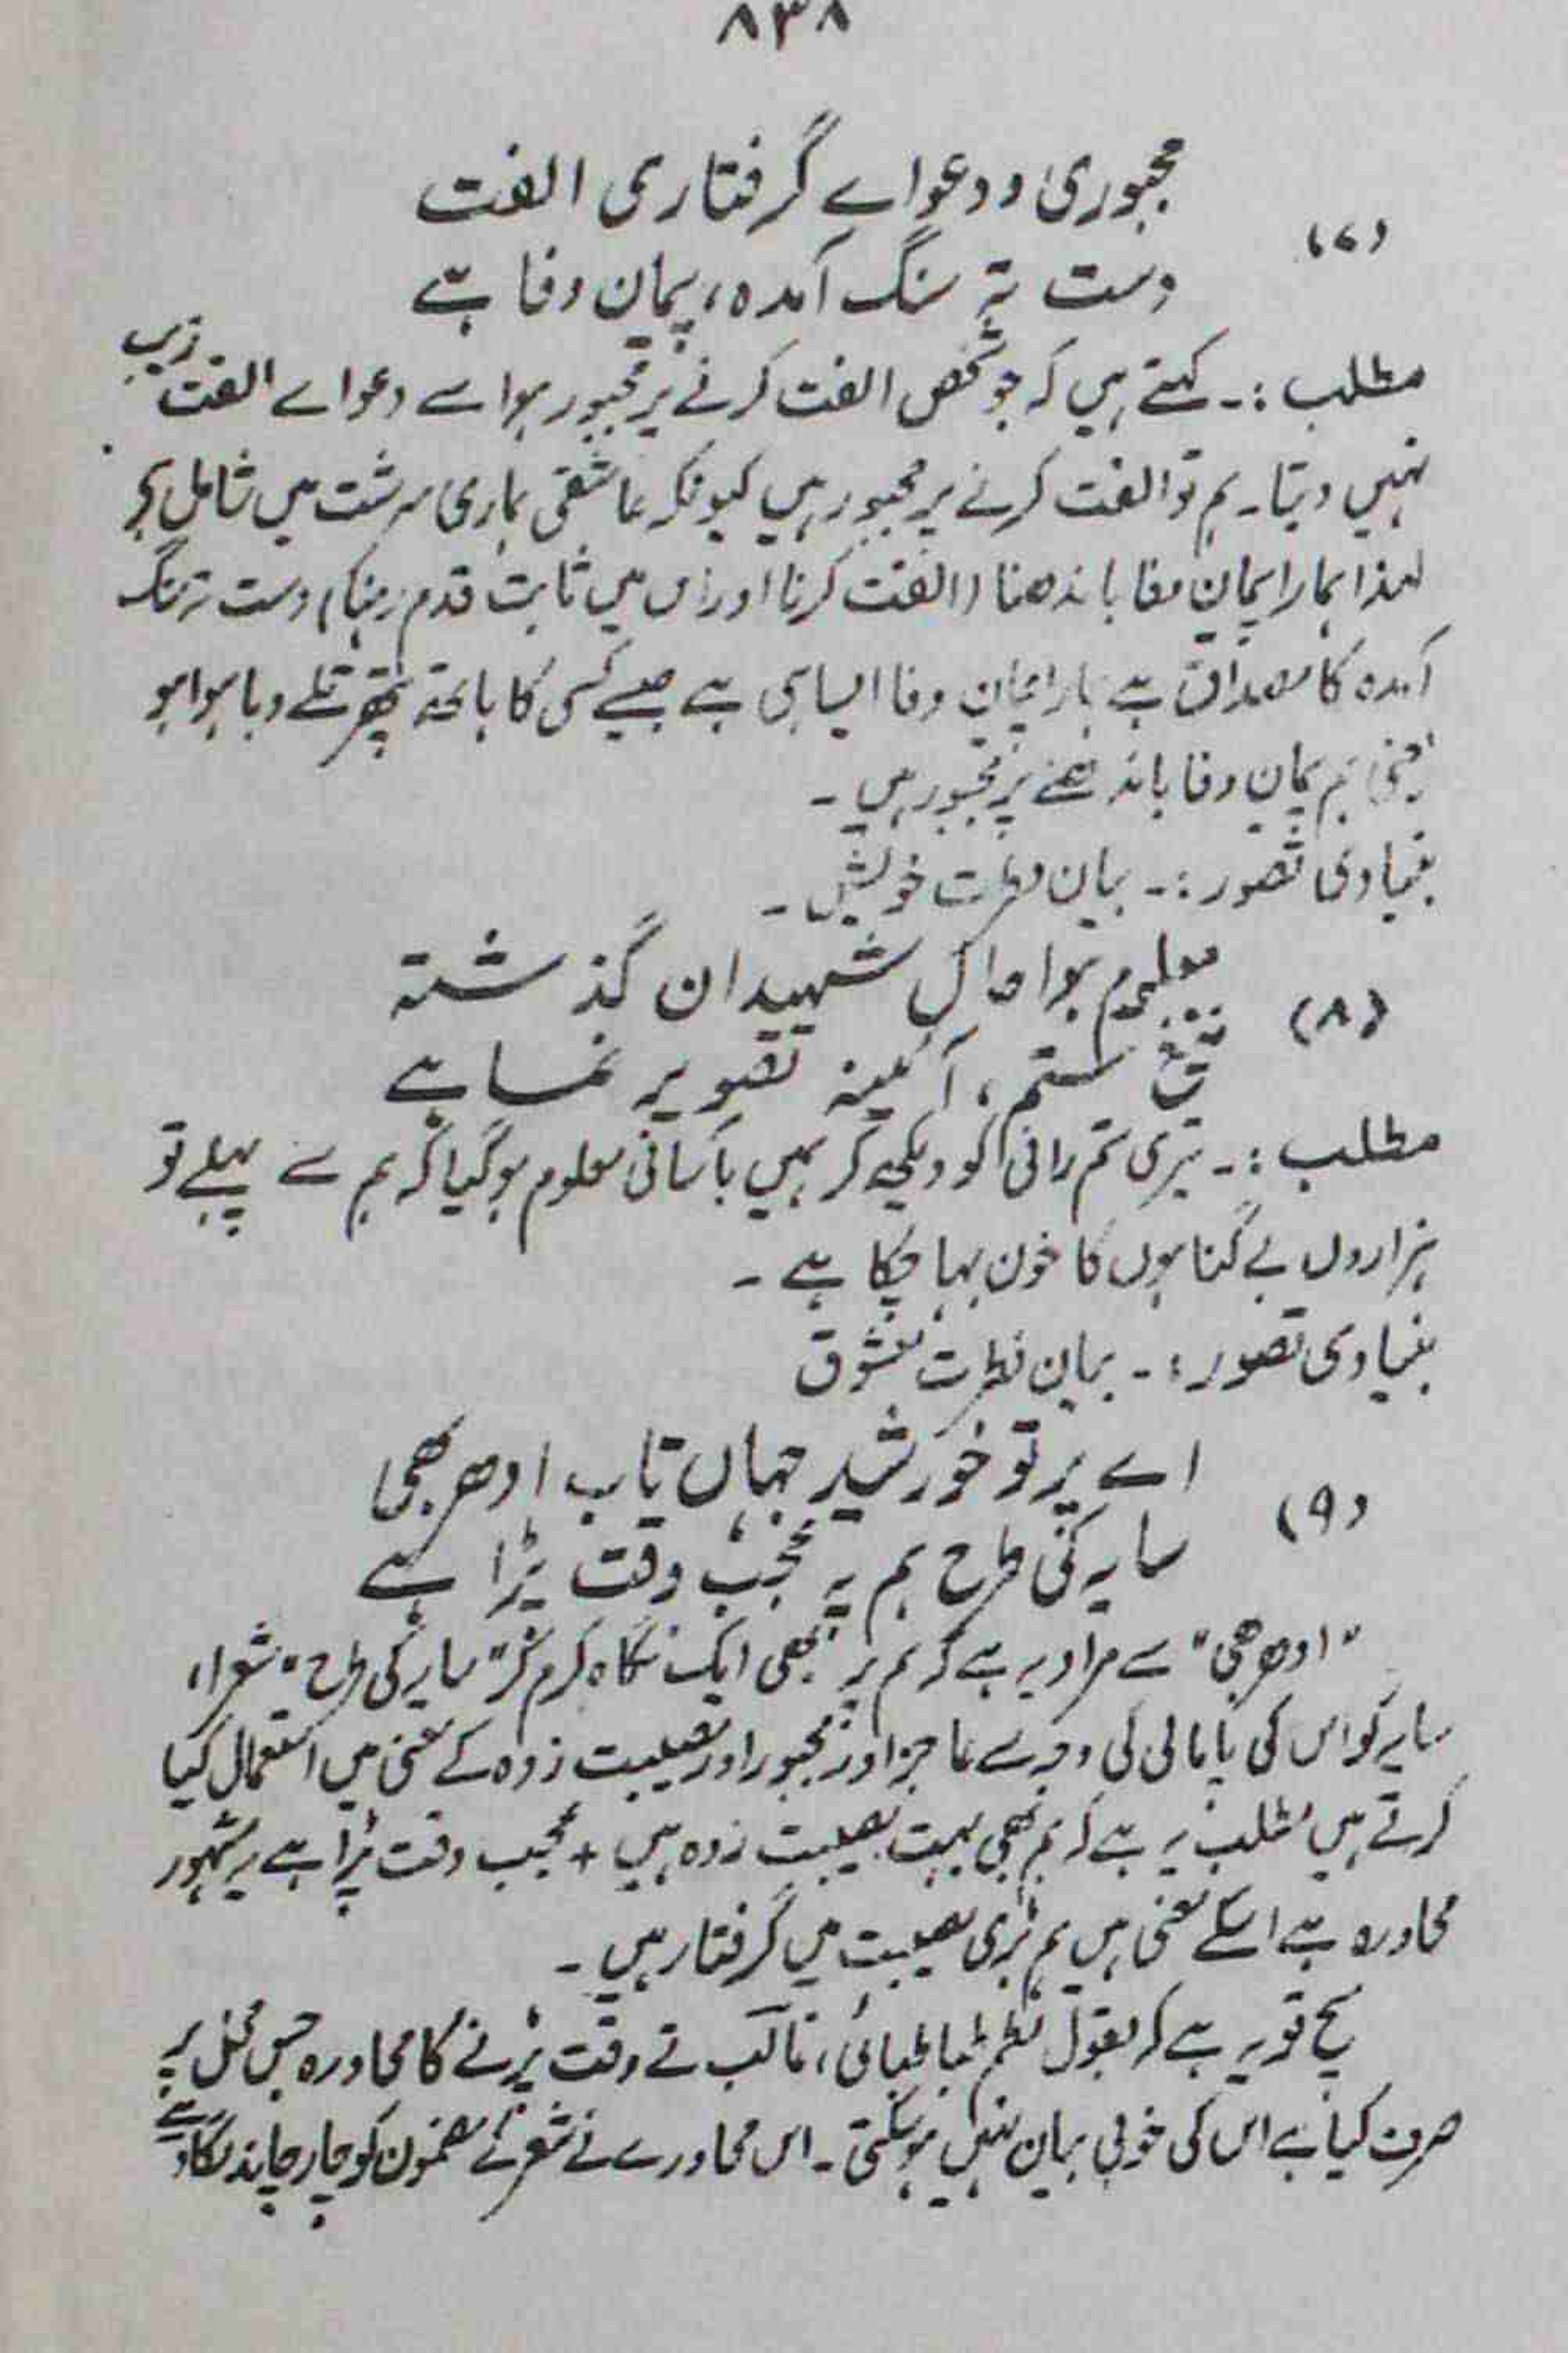 ۸۳۸
مجبوری و دعواے گرفتاری الفت
(۷)
دست تہِ سنگ آمدہ، پیمان وفا ہے
مطلب :۔ کہتے ہیں کہ جو شخص الفت کرنے پر مجبور ہو اسے دعواے الفت زیب
نہیں دیتا۔ ہم تو الفت کرنے پر مجبور ہیں کیونکہ عاشقی ہماری سرشت میں شامل ہے
لہذا ہمارا پیمان وفا باندھنا (الفت کرنا اور اس میں ثابت قدم رہنا) دست تہ سنگ
آمدہ کا مصداق ہے ہمارا پیمان وفا ایسا ہی ہے جیسے کسی کا ہاتھ پتھر تلے دبا ہوا ہو
یعنی ہم پیمان وفا باندھنے پر مجبور ہیں ۔
بنیادی تصور :۔ بیان فطرت خویش ۔
معلوم ہوا حال شہیدان گذشتہ
(۸)
تیغ ستم، آئینہ تصویر نما ہے
مطلب :۔ تیری ستم رانی کو دیکھ کر ہمیں بآسانی معلوم ہو گیا کہ ہم سے پہلے تو
ہزاروں بے گناہوں کا خون بہا چکا ہے ۔
بنیادی تصور :۔ بیان فطرت معشوق
اے پرتو خورشید جہاں تاب ادھر بھی
(۹)
سایہ کی طرح ہم پہ عجب وقت پڑا ہے
"ادھر بھی" سے مراد یہ ہے کہ ہم پر بھی ایک نگاہ کرم کر "سایہ کی طرح" شعراء
سایہ کو اس کی پامالی کی وجہ سے عاجز اور مجبور اور مصیبت زدہ کے معنی میں استعمال کیا
کرتے ہیں مطلب یہ ہے کہ ہم بھی بہت مصیبت زدہ ہیں + عجب وقت پڑا ہے یہ مشہور
محاورہ ہے اسکے معنی ہیں ہم بڑی مصیبت میں گرفتار ہیں ۔
سچ تو یہ ہے کہ بقول نظم طباطبائی، غالب نے وقت پڑنے کا محاورہ جس محل پر
صرف کیا ہے اس کی خوبی بیان نہیں ہو سکتی ۔ اس محاورے نے شعر کے مضمون کو چار چاند لگا دیے